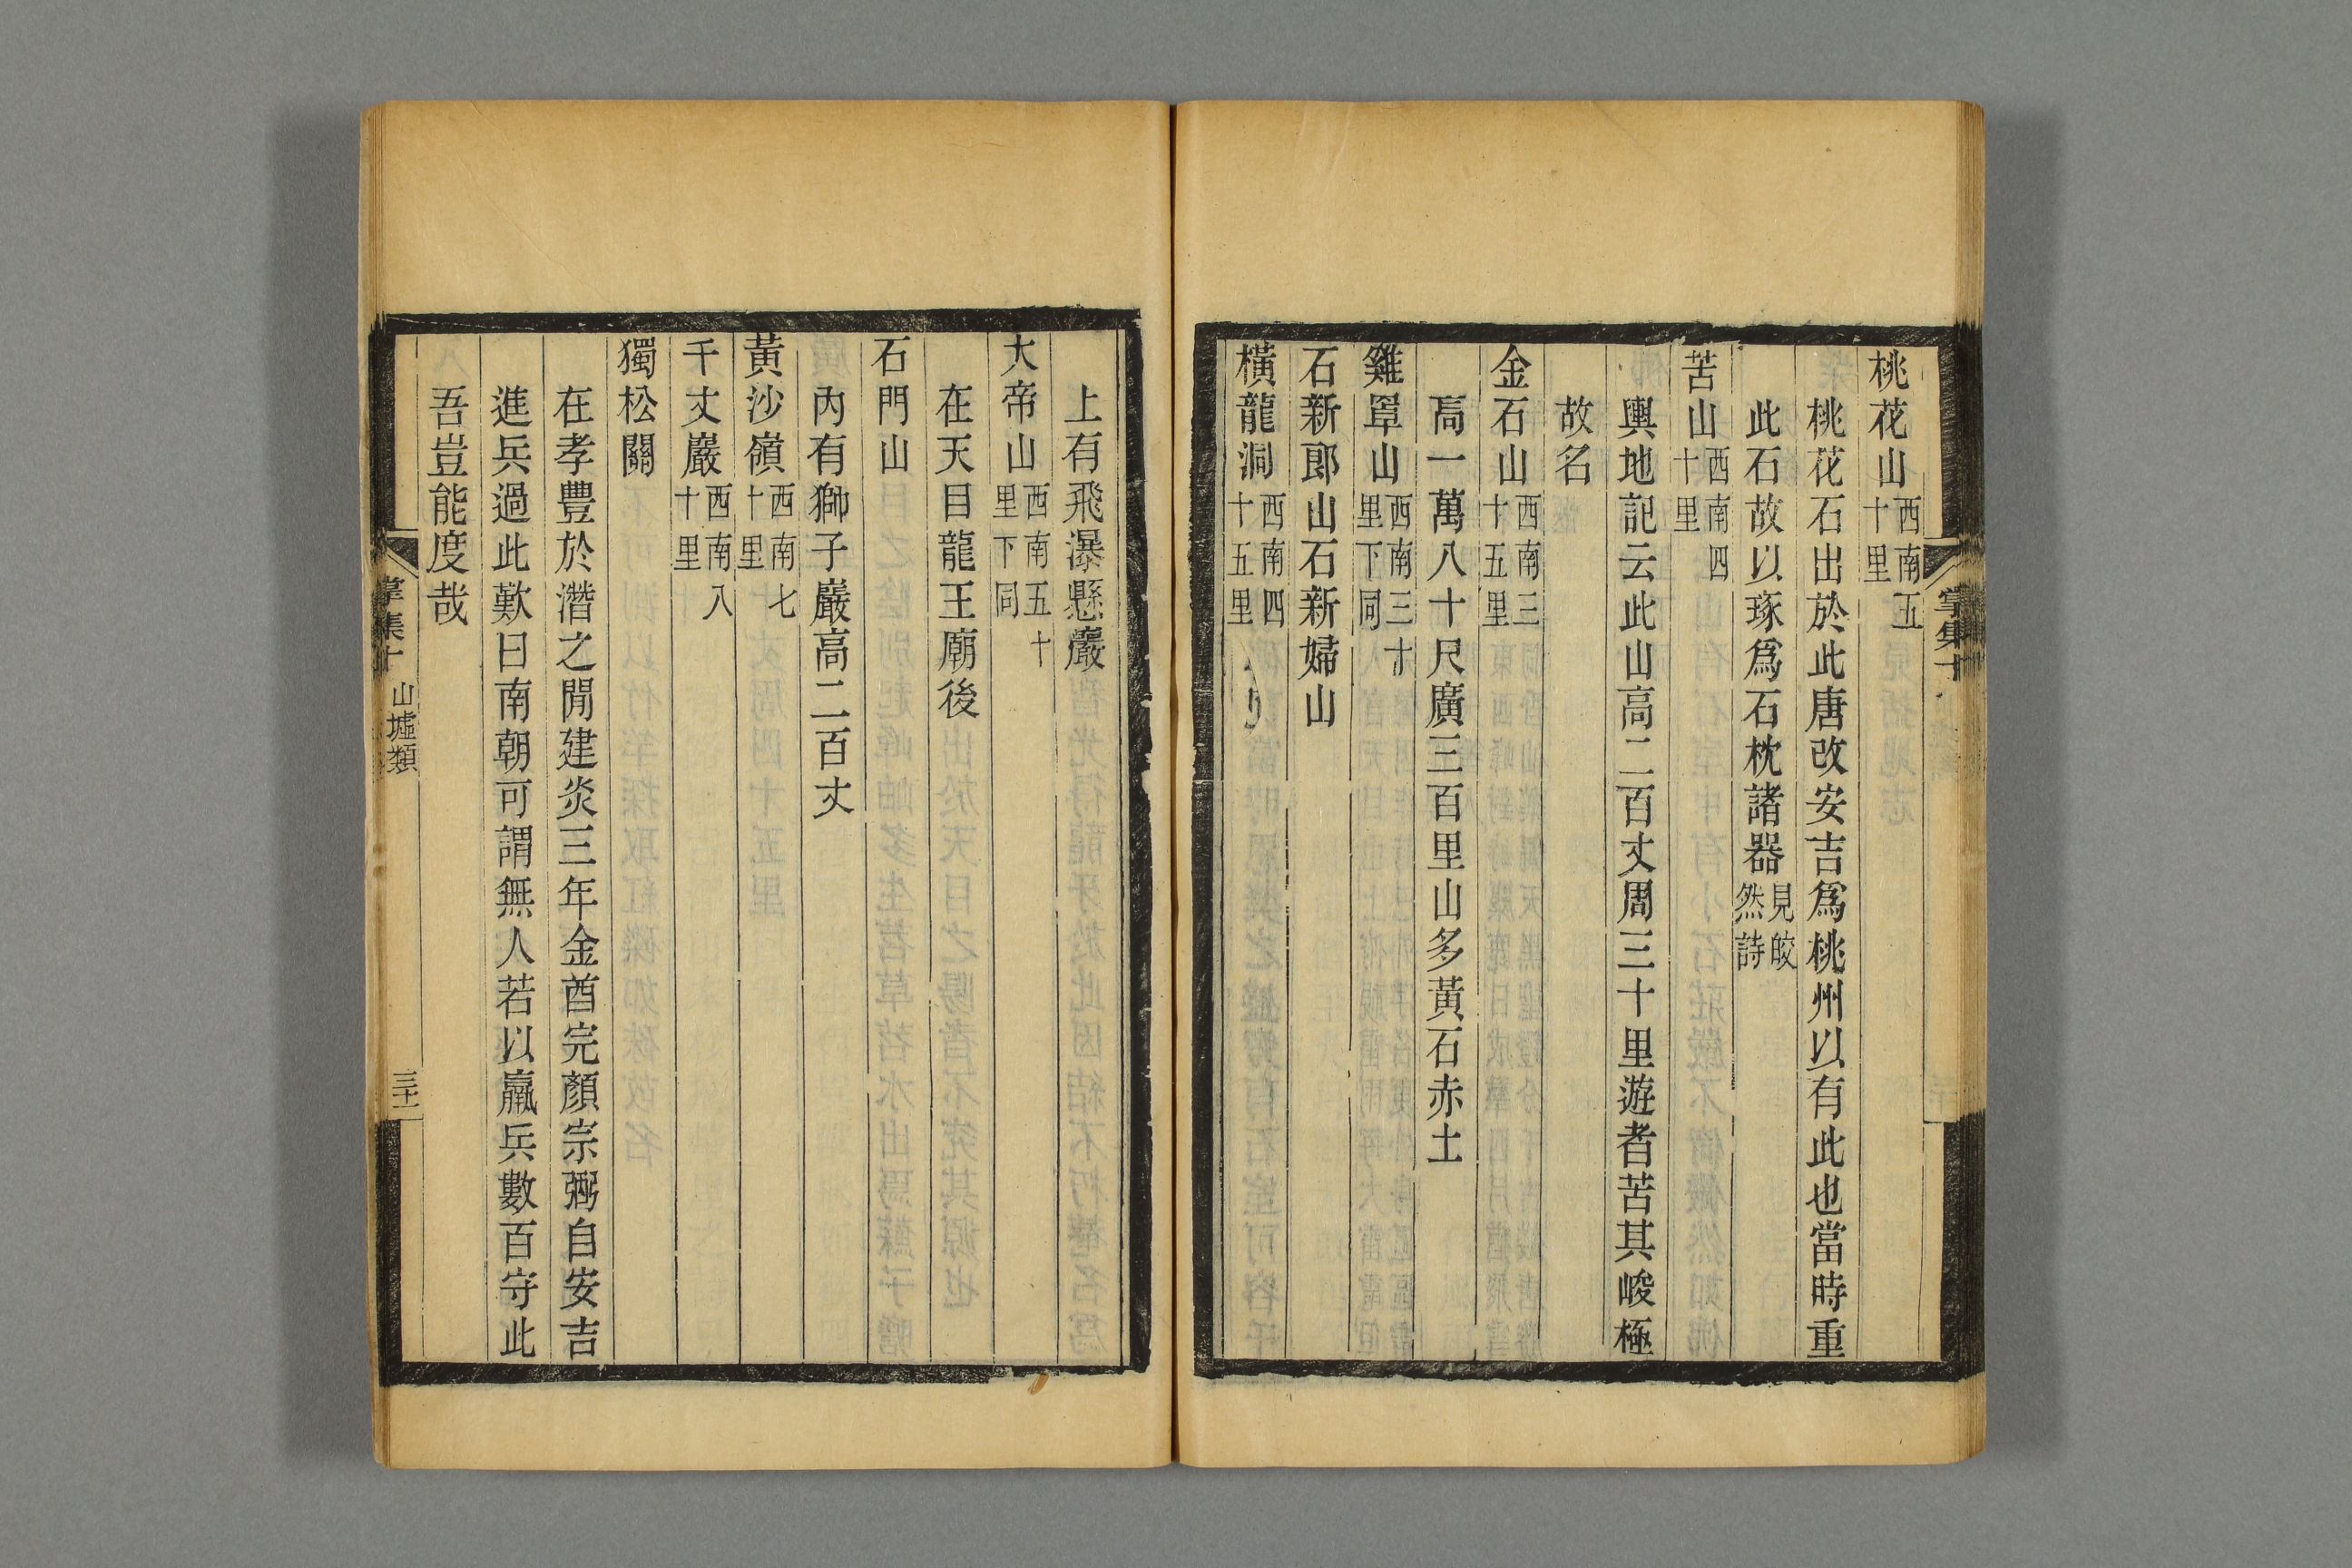 桃花山西南五十里
桃花石出於此唐改安吉爲桃州以有此也當時重
此石故以琢爲石枕諸器見皎然詩
苦山西南四十里
輿地記云此山高二百丈周三十里遊者苦其峻極
故名
金石山西南三十五里
高一萬八十尺廣三百里山多黃石赤土
雞罩山西南三十里下同
石新郎山石新婦山
橫龍洞西南四十五里
掌集十
上有飛瀑懸巖
大帝山西南五十里下同
在天目龍王廟後
石門山
內有獅子巖高二百丈
黃沙嶺西南七十里
千丈巖西南八十里
獨松關
在孝豐於潛之間建炎三年金酋完顏宗弼自安吉
進兵過此歎曰南朝可謂無人若以羸兵數百守此
吾豈能度哉
掌集十 山墟類 三十二